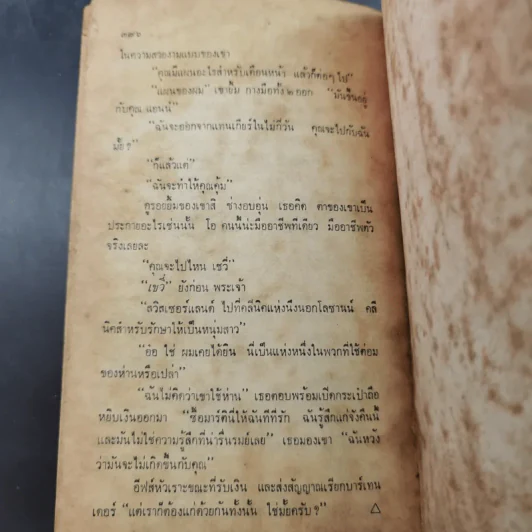 ๓๙๖
ในความสวยงามแบบของเขา
“คุณมีแผนอะไรสำหรับเดือนหน้า แล้วก็ต่อๆ ไป”
“แผนของผม” เขายิ้ม กางมือทั้ง ๒ ออก “มันขึ้นอยู่
กับคุณ แอนน์”
“ฉันจะออกจากแทนเกียร์ในไม่กี่วัน คุณจะไปกับฉัน
มั้ย?”
“ก็แล้วแต่”
“ฉันจะทำให้คุณคุ้ม”
ดูรอยยิ้มของเขาสิ ช่างอบอุ่น เธอคิด ตาของเขาเป็น
ประกายอะไรเช่นนั้น โอ คนนี้น่ะมืออาชีพทีเดียว มืออาชีพตัว
จริงเลยละ
“คุณจะไปไหน เชวี่”
“เชวี่” ยังก่อน พระเจ้า
“สวิสเซอร์แลนด์ ไปที่คลีนิคแห่งนึงนอกโลซานน์ คลี
นิคสำหรับรักษาให้เป็นหนุ่มสาว”
“อ๋อ ใช่ ผมเคยได้ยิน นี่เป็นแห่งหนึ่งในพวกที่ใช้ต่อม
ของห่านหรือเปล่า”
“ฉันไม่คิดว่าเขาใช้ห่าน” เธอตอบพร้อมเปิดกระเป๋าถือ
หยิบเงินออกมา “ซื้อมาร์คินี่ให้ฉันทีที่รัก ฉันรู้สึกแก่จังคืนนี้
และมันไม่ใช่ความรู้สึกที่น่ารื่นรมย์เลย” เธอมองเขา “ฉันหวัง
ว่ามันจะไม่เกิดขึ้นกับคุณ”
อีฟส์หัวเราะขณะที่รับเงิน และส่งสัญญาณเรียกบาร์เทน
เดอร์ “แต่เราก็ต้องแก่ด้วยกันทั้งนั้น ใช่มั้ยครับ?” △